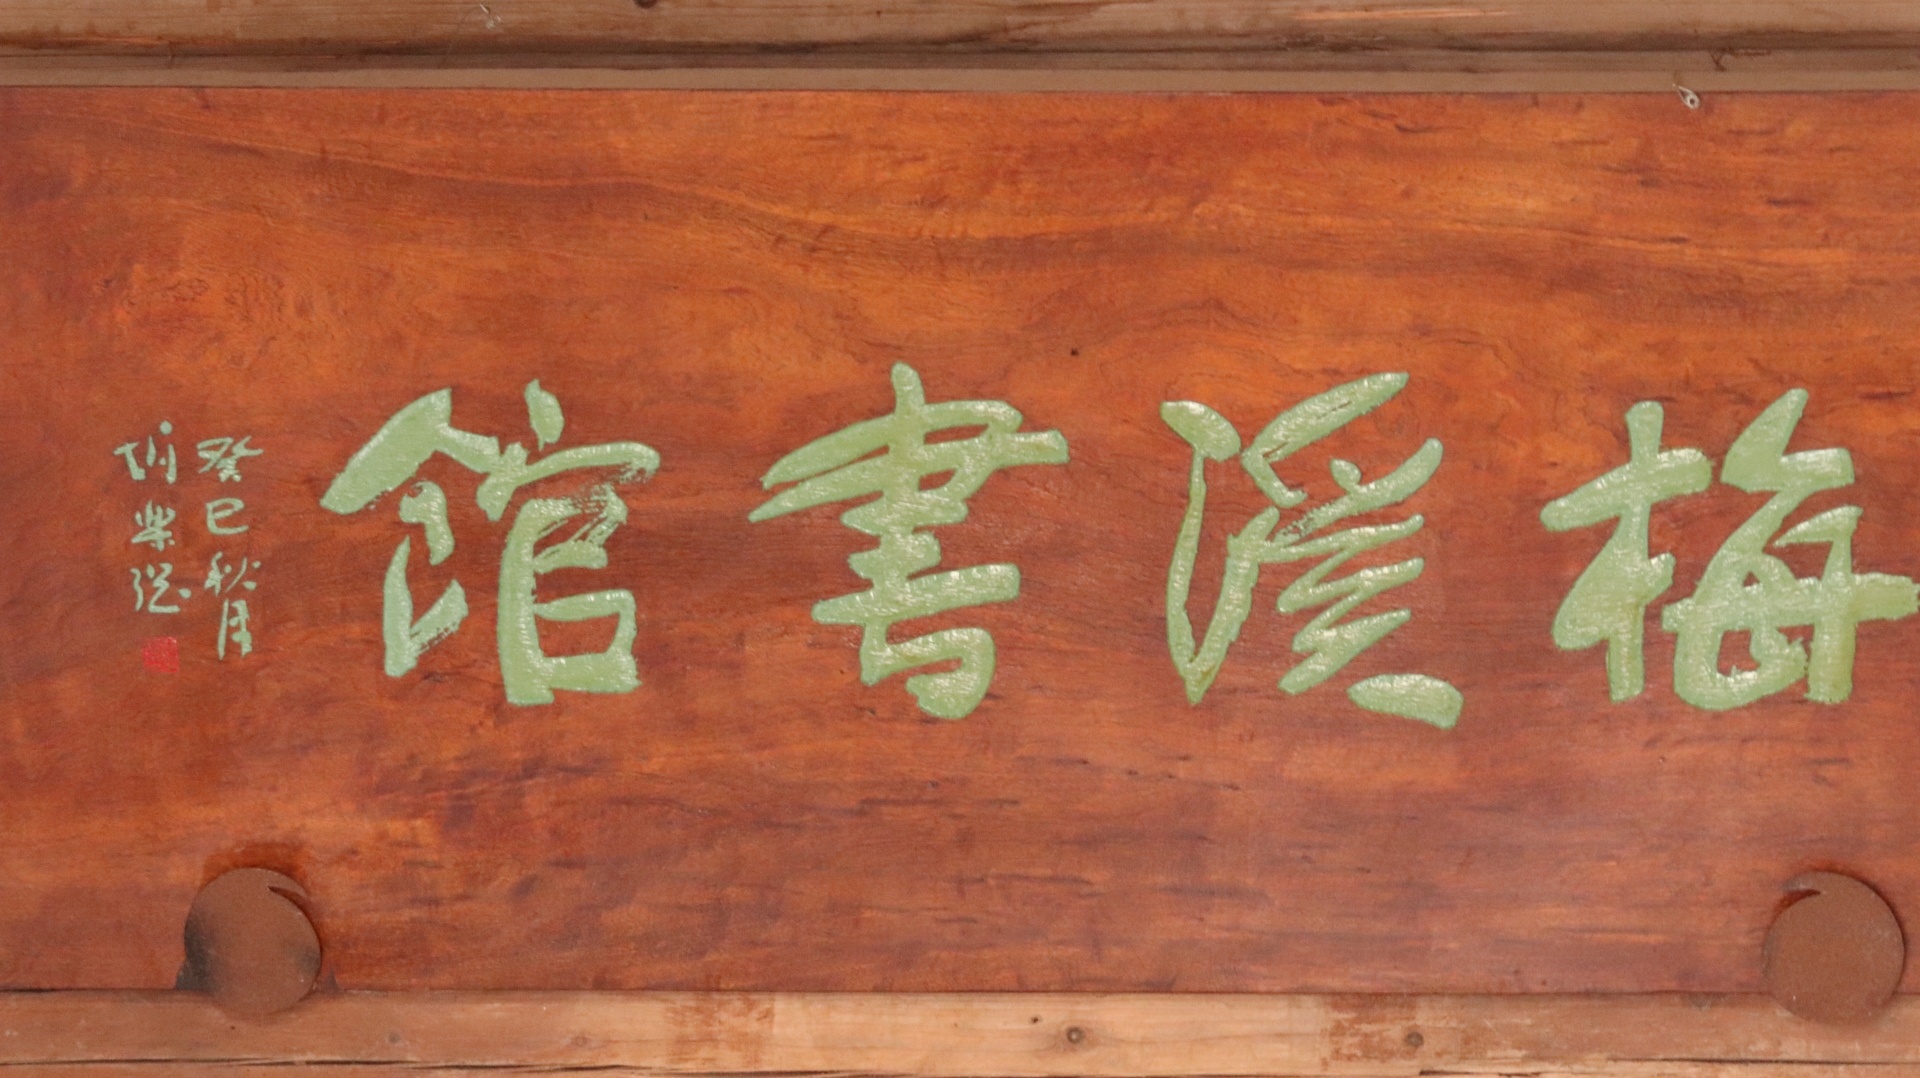 梅溪書館
癸巳秋月